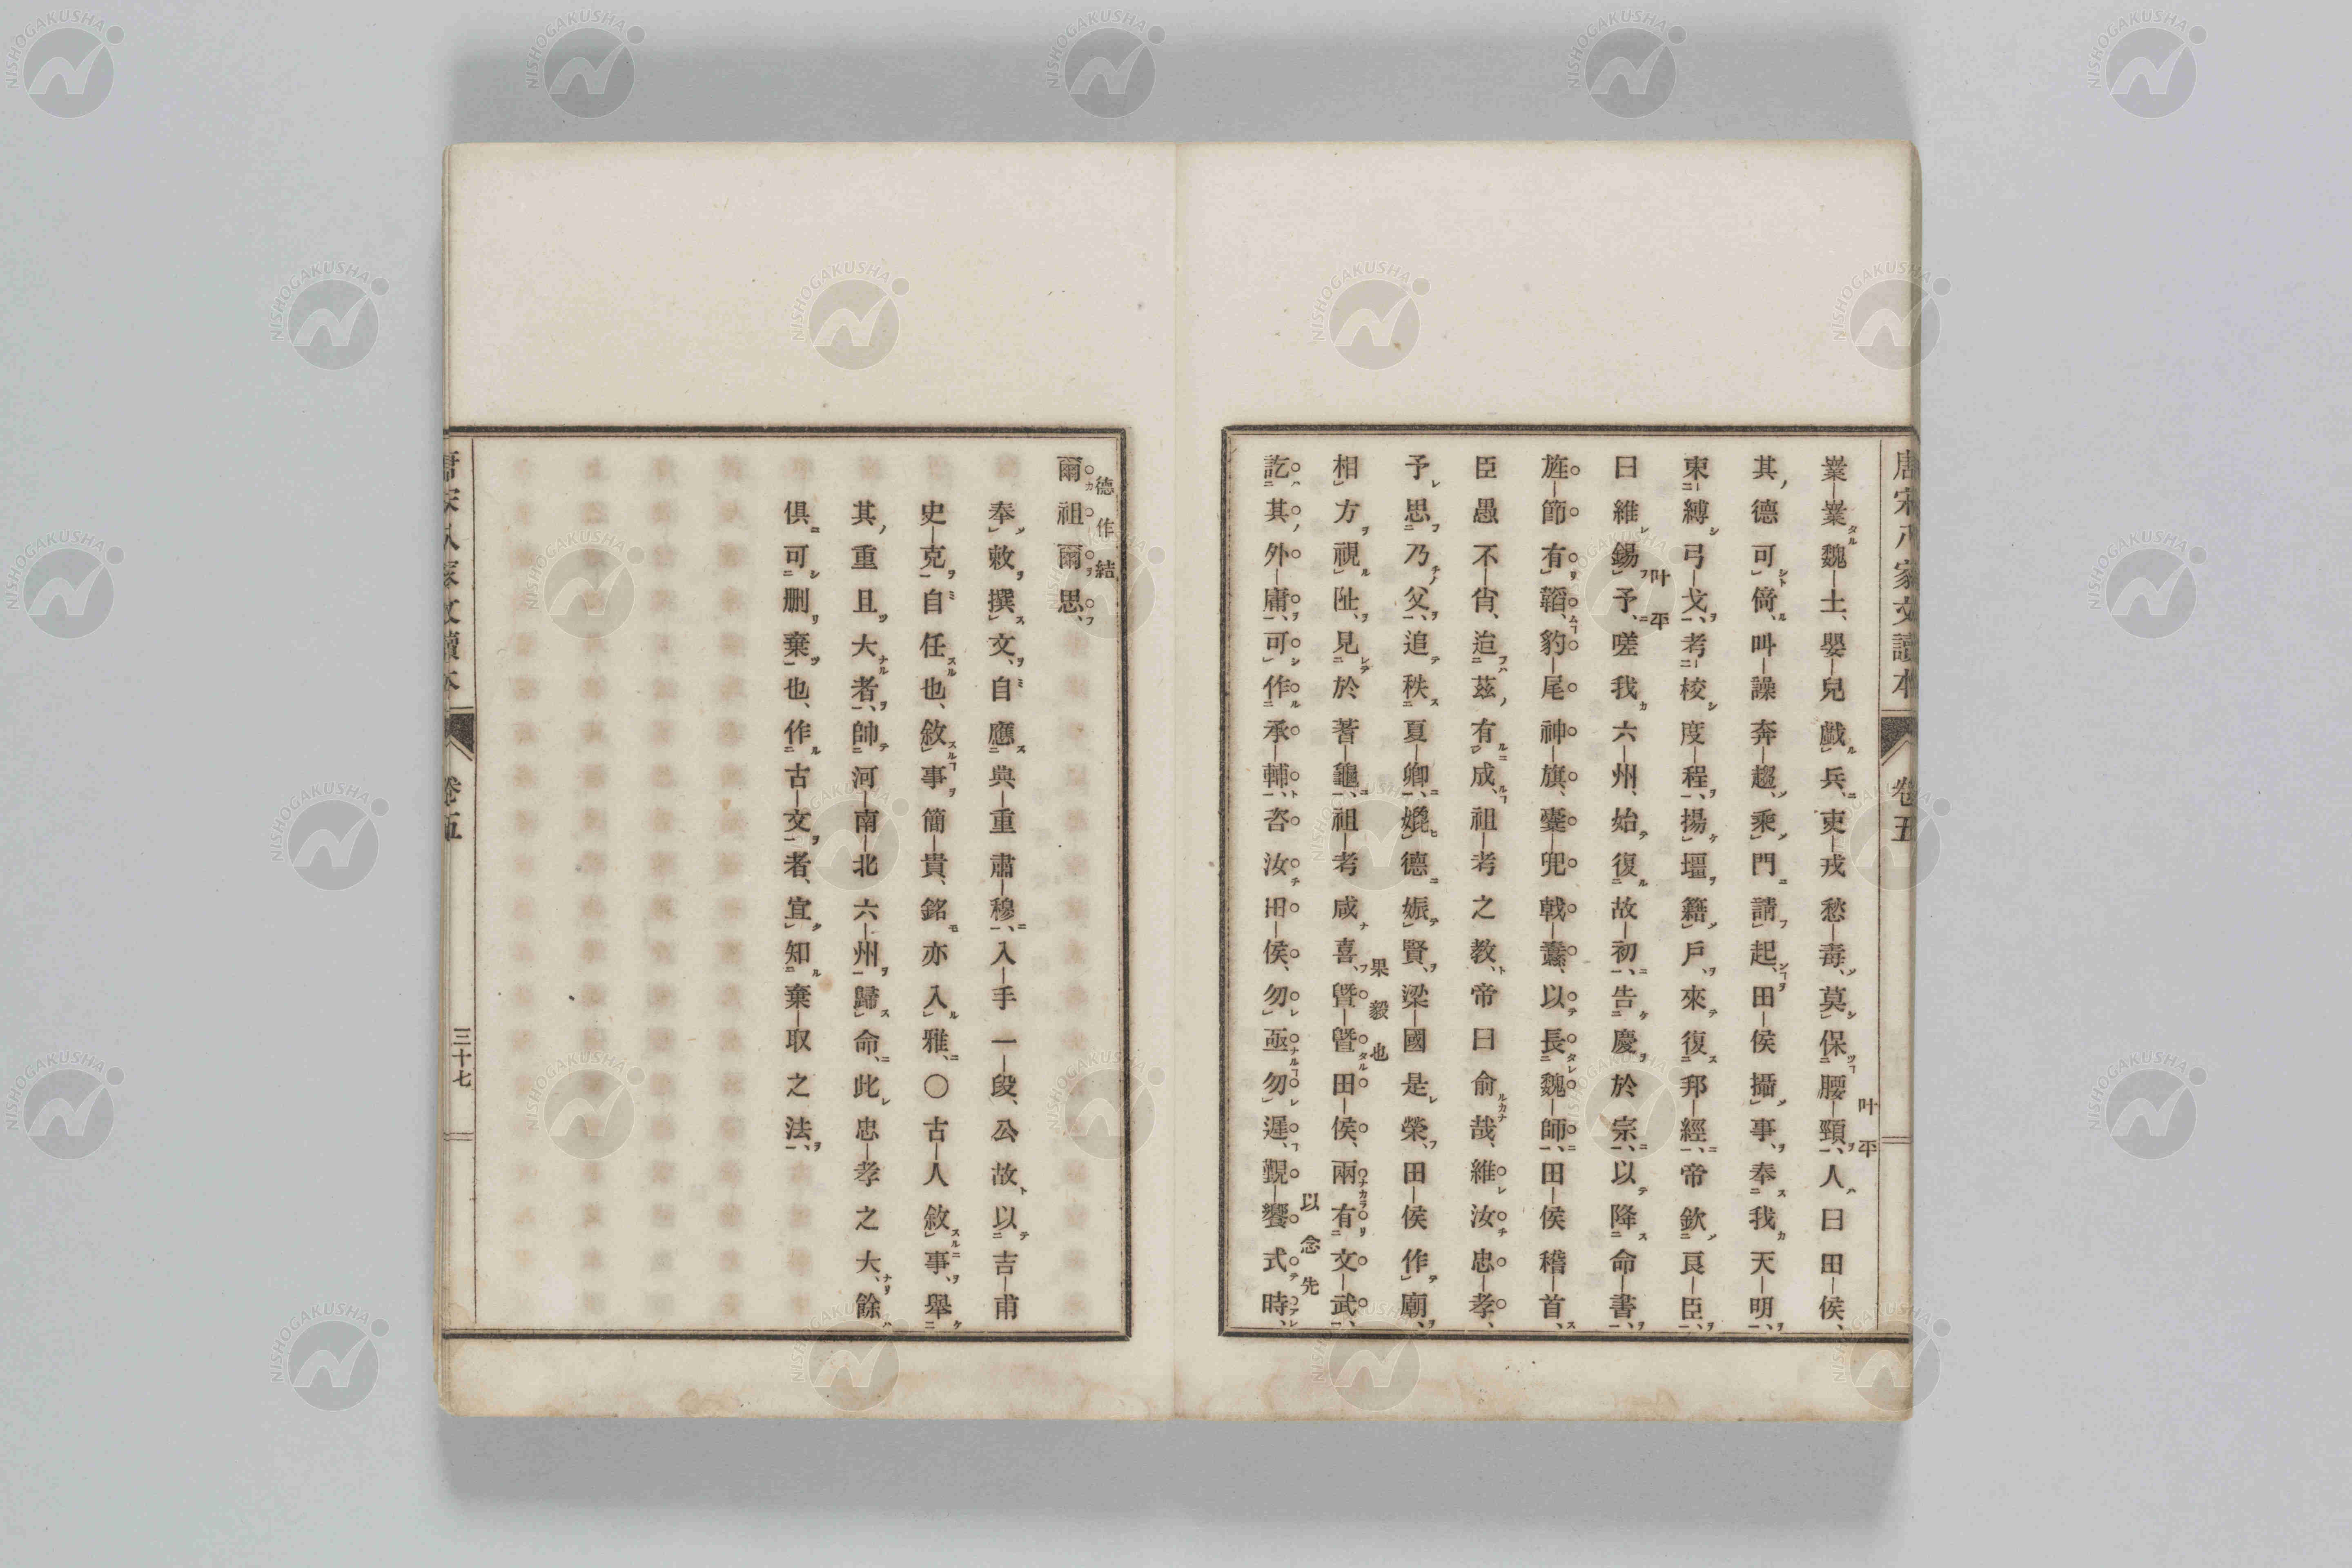 唐宋八家文讀本 卷五
嶪嶪魏土、嬰兒戲兵、吏戎愁毒、莫保腰頸、人曰田侯、
叶平
其德可倚、叫譟奔趨、乘門請起、田侯攝事、奉我天明、
束縛弓戈、考校度程、揚壇籍戶、來復邦經、帝欽良臣、
曰維錫予、嗟我六州、始復故初、告慶於宗、以降命書、
叶平
旌節有韜、豹尾神旗、櫜兜戟纛、以長魏師、田侯稽首、
臣愚不肖、迨茲有成、祖考之教、帝曰俞哉、維汝忠孝、
予思乃父、追秩夏卿、媲德娠賢、梁國是榮、田侯作廟、
相方視阯、見於蓍龜、祖考咸喜、曁曁田侯、兩有文武、
果毅也
訖其外庸、可作承輔、咨汝田侯、勿亟勿遲、覲饗式時、
以念先
爾祖爾思、
德作結
奉敕撰文、自應典重肅穆、入手一段、公故以吉甫
史克自任也、敘事簡貴、銘亦入雅、〇古人敘事、舉
其重且大者、帥河南北六州歸命、此忠孝之大、餘
俱可刪棄也、作古文者、宜知棄取之法、
三十七